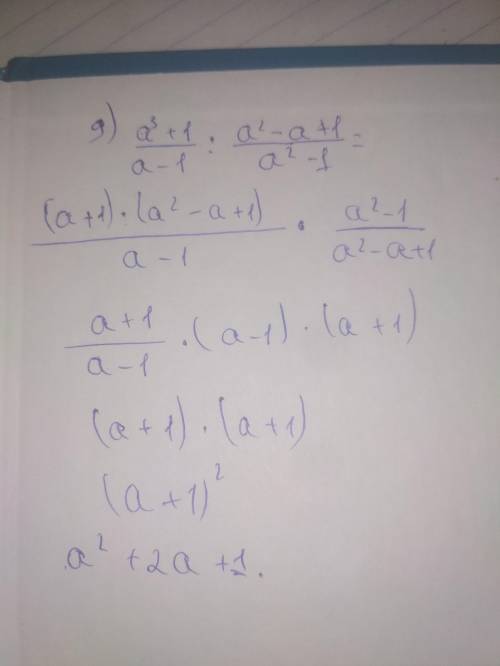 g) (a³+1)/(a-1) : (a²-a+1)/(a²-1) =
((a+1)·(a²-a+1))/(a-1) · (a²-1)/(a²-a+1)
(a+1)/(a-1) · (a-1)·(a+1)
(a+1)·(a+1)
(a+1)²
a²+2a+1.